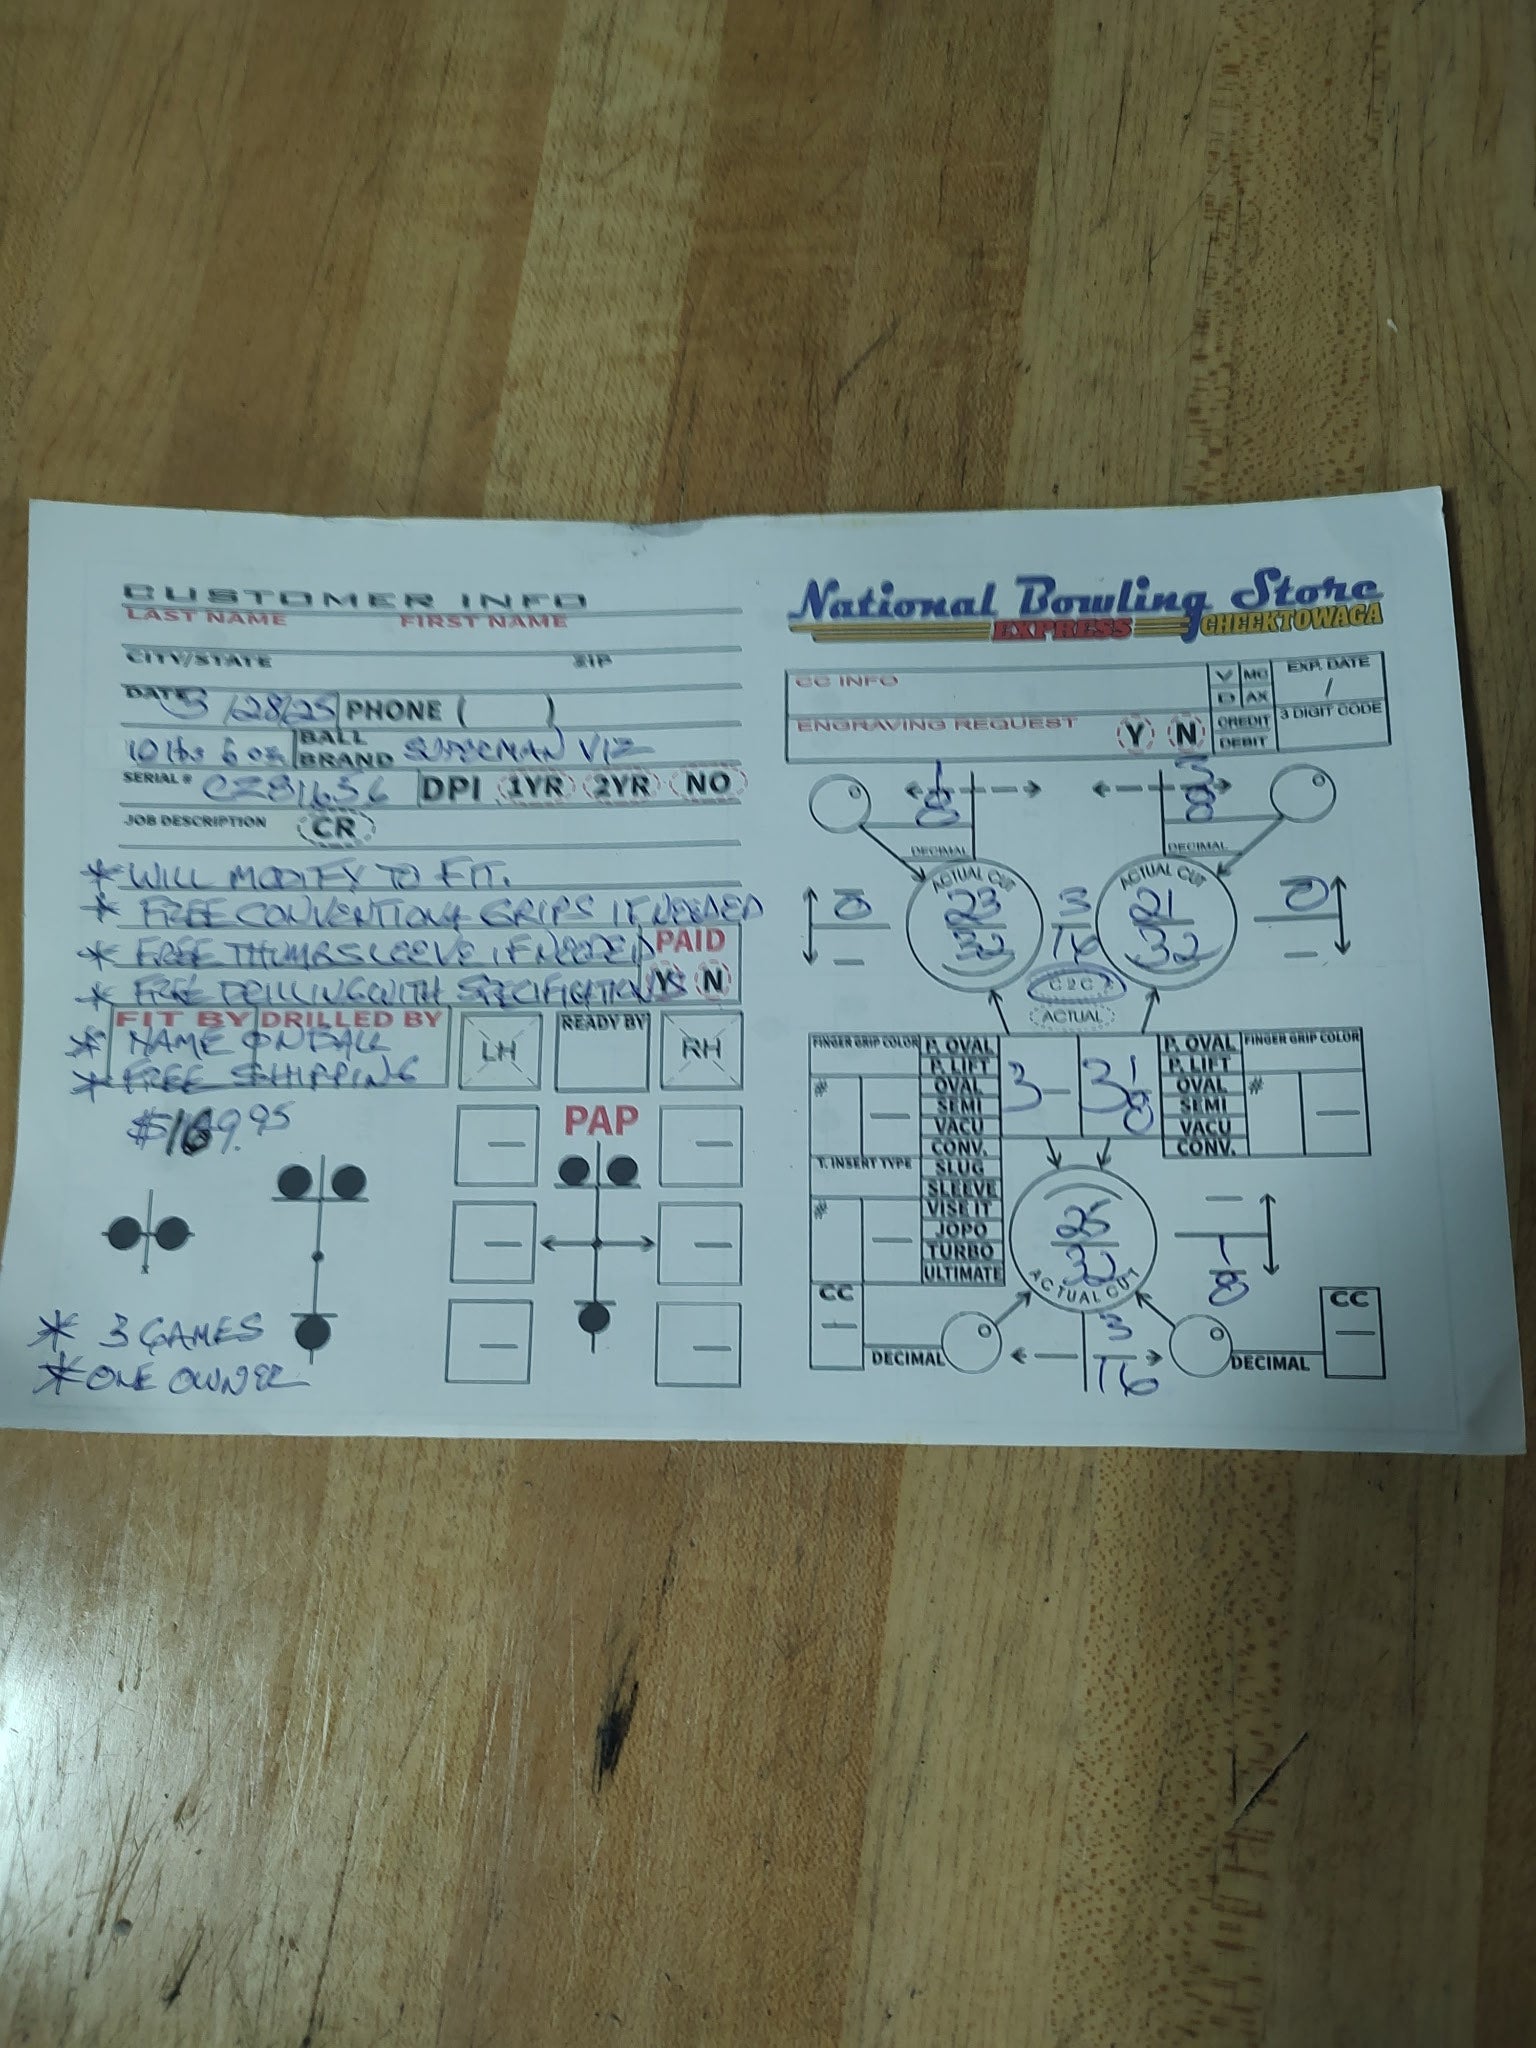 CUSTOMER INFO
LAST NAME FIRST NAME
CITY/STATE ZIP
DATE 3/28/25 PHONE ( )
10 lbs 6 oz BALL BRAND SUPERMAN VIZ
SERIAL # DPI 1YR 2YR NO
JOB DESCRIPTION CR
* WILL MODIFY TO FIT.
* FREE CONVENTIONAL GRIPS IF NEEDED
* FREE THUMBSLEEVE IF NEEDED
PAID
Y N
* FREE DRILLING WITH SPECIFICATIONS
FIT BY DRILLED BY
* NAME ON BALL
* FREE SHIPPING
$169.95
LH READY BY RH
PAP
* 3 GAMES
* ONE OWNER
National Bowling Store
EXPRESS CHEEKTOWAGA
CC INFO
V MC
D AX
EXP. DATE
/
ENGRAVING REQUEST Y N
CREDIT
DEBIT
3 DIGIT CODE
1/8 3/8
DECIMAL DECIMAL
ACTUAL CUT ACTUAL CUT
0 23/32 3/16 21/32 0
C 2 C
ACTUAL
FINGER GRIP COLOR P. OVAL 3 - 3 1/8 P. OVAL FINGER GRIP COLOR
P. LIFT P. LIFT
# OVAL OVAL #
SEMI SEMI
VACU VACU
CONV. CONV.
T. INSERT TYPE SLUG
SLEEVE
# VISE IT
JOPO
TURBO
ULTIMATE
25/32
ACTUAL CUT
1/8
CC CC
DECIMAL 3/16 DECIMAL